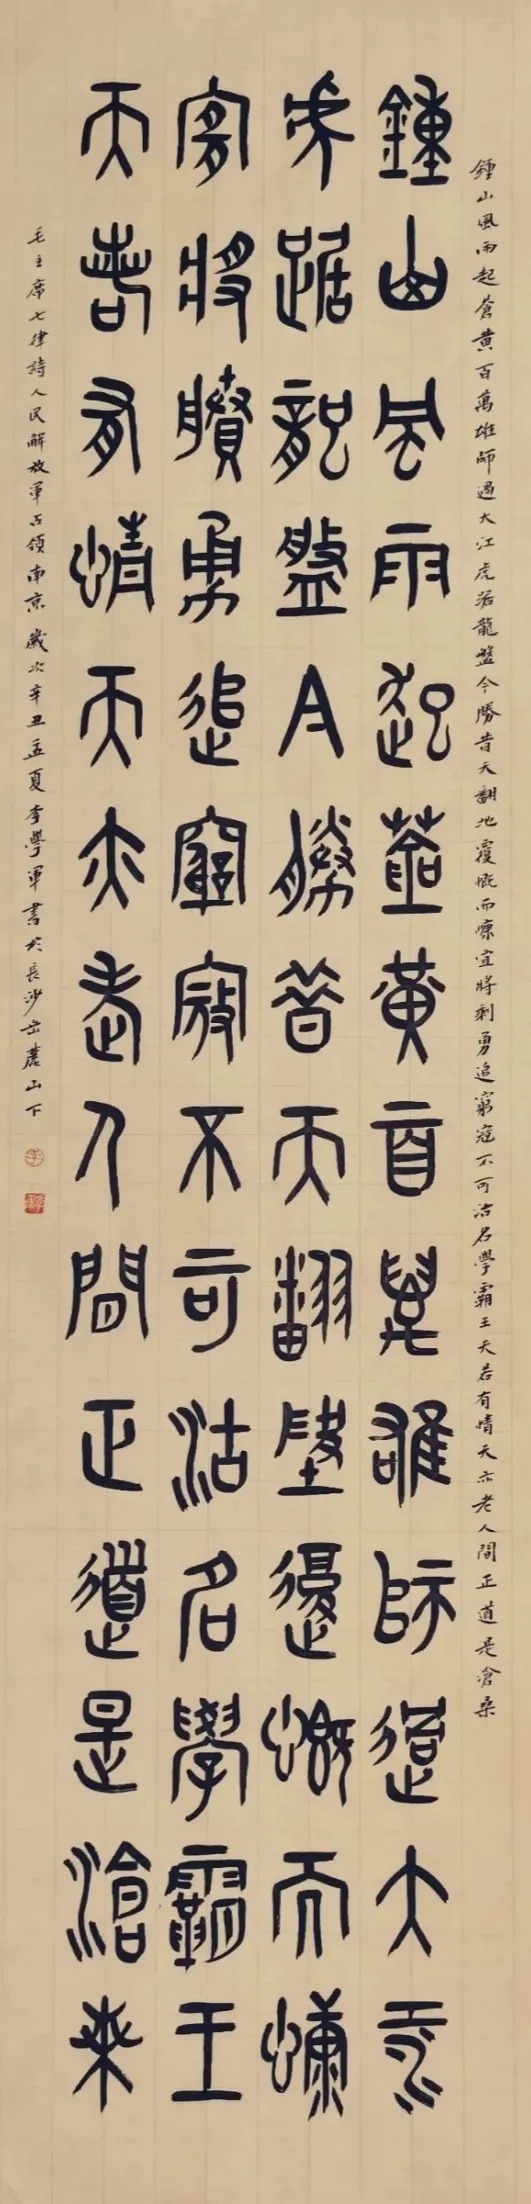 鍾山風雨起蒼黄百萬雄師過大江虎踞龍盤今勝昔天翻地覆慨而慷宜將剩勇追窮寇不可沽名學霸王天若有情天亦老人間正道是滄桑
鍾山風雨起蒼黄百萬雄師過大江
虎踞龍盤今勝昔天翻地覆慨而慷
宜將賸勇追窮寇不可沽名學霸王
天若有情天亦老人間正道是滄桑
毛主席七律詩人民解放軍占領南京 歲次辛丑孟夏李學軍書於長沙岳麓山下